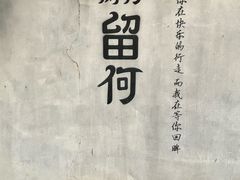 你在快乐的行走 而我在等你回眸
留何